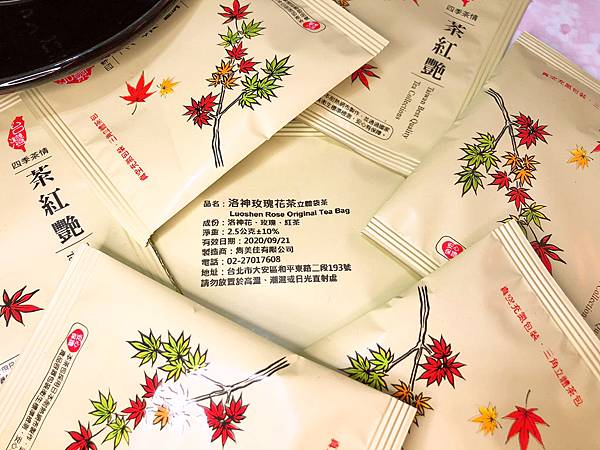 台灣
四季茶情
茶紅艷
Taiwan Best Quality
Tea Collections
四季茶情
茶紅艷
品名：洛神玫瑰花茶立體袋茶
Luoshen Rose Original Tea Bag
成份：洛神花、玫瑰、紅茶
淨重：2.5公克±10%
有效日期：2020/09/21
製造商：雋美佳有限公司
電話：02-27017608
地址：台北市大安區和平東路二段193號
請勿放置於高溫、潮濕或日光直射處
真空充氮包裝 三角立體茶包